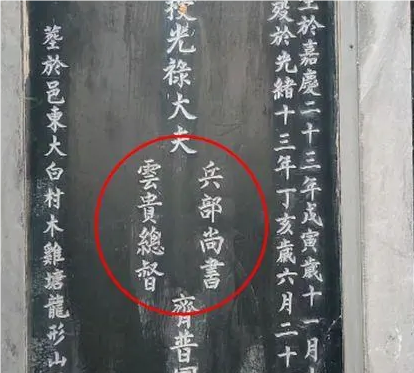 生於嘉慶二十三年戊寅歲十一月
歿於光緒十三年丁亥歲六月二十
授光祿大夫
兵部尚書
雲貴總督
齊普
葬於邑東大白村木雞塘龍形山